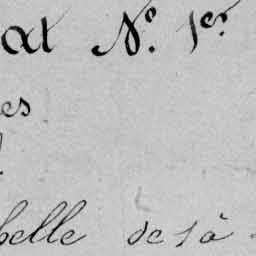 at N.° 1.er
es
belle de s à